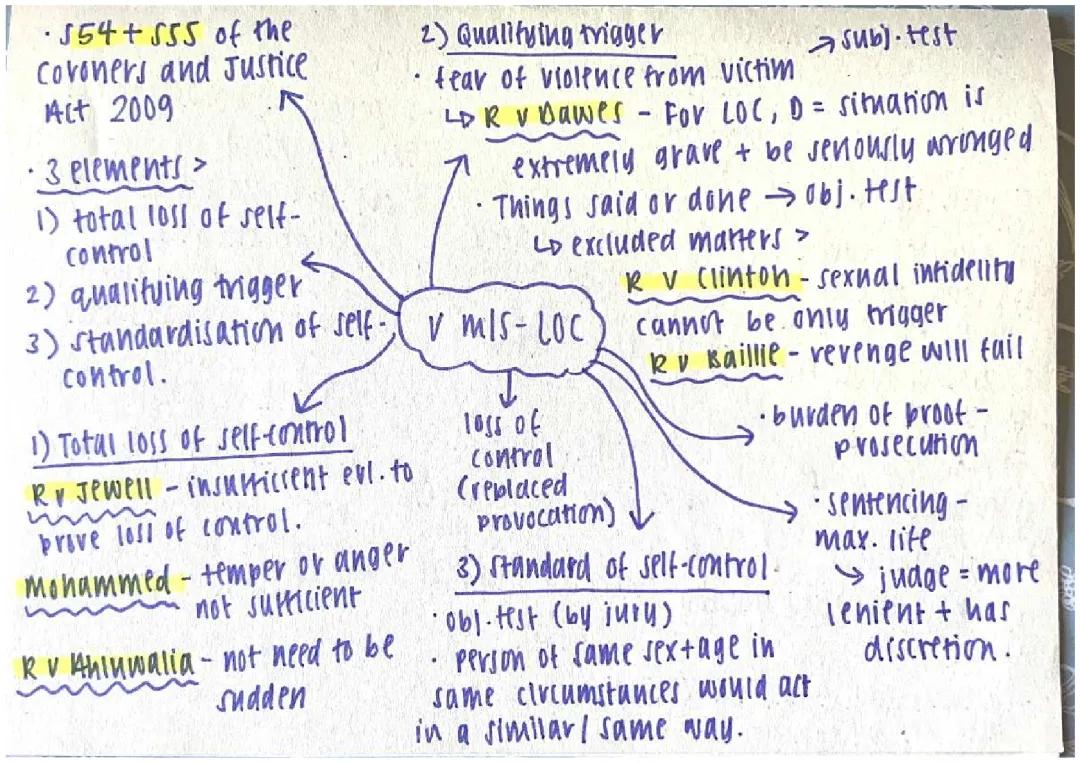 · S54 + S55 of the
Coroners and Justice
Act 2009
· 3 elements >
1) total loss of self-
control
2) qualifying trigger
3) standardisation of self-
control.
1) Total loss of self-control
R v Jewell - insufficient evi. to
prove loss of control.
Mohammed - temper or anger
not sufficient
R v Ahluwalia - not need to be
sudden
V M/S - LOC
loss of
control
(replaced
provocation)
2) Qualifying trigger → subj. test
· fear of violence from victim
↳ R v Dawes - For LOC, D = situation is
extremely grave + be seriously wronged
· Things said or done → obj. test
↳ excluded matters >
R V Clinton - sexual infidelity
cannot be only trigger
R v Baillie - revenge will fail
· burden of proof -
prosecution
· sentencing -
max. life
↳ judge = more
lenient + has
discretion.
3) Standard of self-control
· obj. test (by jury)
· person of same sex + age in
same circumstances would act
in a similar / same way.